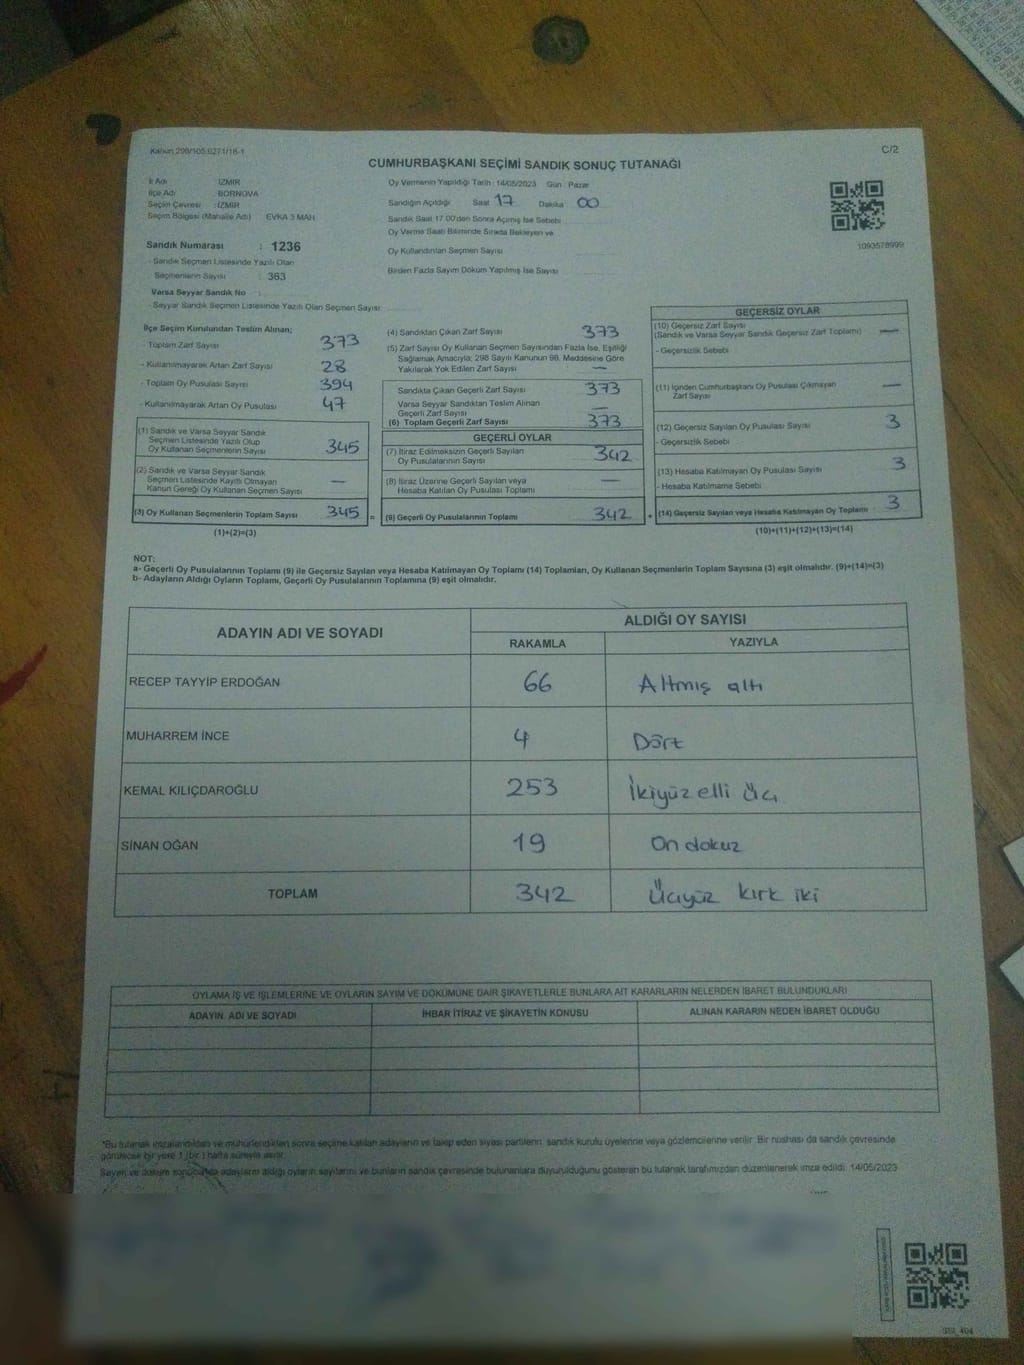 Kanun 298/105:0271/18-1
C/2
CUMHURBAŞKANI SEÇİMİ SANDIK SONUÇ TUTANAĞI
İl Adı : İZMİR
İlçe Adı : BORNOVA
Seçim Çevresi : İZMİR
Seçim Bölgesi (Mahalle Adı) EVKA 3 MAH
Sandık Numarası : 1236
- Sandık Seçmen Listesinde Yazılı Olan
Seçmenlerin Sayısı : 363
Varsa Seyyar Sandık No :
- Seyyar Sandık Seçmen Listesinde Yazılı Olan Seçmen Sayısı
Oy Vermenin Yapıldığı Tarih : 14/05/2023 Gün : Pazar
Sandığın Açıldığı Saat 17 Dakika 00
Sandık Saat 17.00'den Sonra Açılmış İse Sebebi
Oy Verme Saati Bitiminde Sırada Bekleyen ve
Oy Kullandırılan Seçmen Sayısı
Birden Fazla Sayım Döküm Yapılmış İse Sayısı
1093578999
İlçe Seçim Kurulundan Teslim Alınan;
- Toplam Zarf Sayısı 373
- Kullanılmayarak Artan Zarf Sayısı 28
- Toplam Oy Pusulası Sayısı 394
- Kullanılmayarak Artan Oy Pusulası 47
(1) Sandık ve Varsa Seyyar Sandık
Seçmen Listesinde Yazılı Olup
Oy Kullanan Seçmenlerin Sayısı 345
(2) Sandık ve Varsa Seyyar Sandık
Seçmen Listesinde Kayıtlı Olmayan
Kanun Gereği Oy Kullanan Seçmen Sayısı —
(3) Oy Kullanan Seçmenlerin Toplam Sayısı 345 =
(1)+(2)=(3)
(4) Sandıktan Çıkan Zarf Sayısı 373
(5) Zarf Sayısı Oy Kullanan Seçmen Sayısından Fazla İse, Eşitliği
Sağlamak Amacıyla; 298 Sayılı Kanunun 98. Maddesine Göre
Yakılarak Yok Edilen Zarf Sayısı —
Sandıkta Çıkan Geçerli Zarf Sayısı 373
Varsa Seyyar Sandıktan Teslim Alınan
Geçerli Zarf Sayısı —
(6) Toplam Geçerli Zarf Sayısı 373
GEÇERLİ OYLAR
(7) İtiraz Edilmeksizin Geçerli Sayılan
Oy Pusulalarının Sayısı 342
(8) İtiraz Üzerine Geçerli Sayılan veya
Hesaba Katılan Oy Pusulası Toplamı —
(9) Geçerli Oy Pusulalarının Toplamı 342 +
GEÇERSİZ OYLAR
(10) Geçersiz Zarf Sayısı
(Sandık ve Varsa Seyyar Sandık Geçersiz Zarf Toplamı) —
- Geçersizlik Sebebi
(11) İçinden Cumhurbaşkanı Oy Pusulası Çıkmayan
Zarf Sayısı —
(12) Geçersiz Sayılan Oy Pusulası Sayısı 3
- Geçersizlik Sebebi
(13) Hesaba Katılmayan Oy Pusulası Sayısı 3
- Hesaba Katılmama Sebebi
(14) Geçersiz Sayılan veya Hesaba Katılmayan Oy Toplamı 3
(10)+(11)+(12)+(13)=(14)
NOT:
a- Geçerli Oy Pusulalarının Toplamı (9) ile Geçersiz Sayılan veya Hesaba Katılmayan Oy Toplamı (14) Toplamları, Oy Kullanan Seçmenlerin Toplam Sayısına (3) eşit olmalıdır. (9)+(14)=(3)
b- Adayların Aldığı Oyların Toplamı, Geçerli Oy Pusulalarının Toplamına (9) eşit olmalıdır.
ADAYIN ADI VE SOYADI
ALDIĞI OY SAYISI
RAKAMLA YAZIYLA
RECEP TAYYİP ERDOĞAN 66 Altmış altı
MUHARREM İNCE 4 Dört
KEMAL KILIÇDAROĞLU 253 İkiyüz elli üç
SİNAN OĞAN 19 On dokuz
TOPLAM 342 Üçyüz kırk iki
OYLAMA İŞ VE İŞLEMLERİNE VE OYLARIN SAYIM VE DÖKÜMÜNE DAİR ŞİKAYETLERLE BUNLARA AİT KARARLARIN NELERDEN İBARET BULUNDUKLARI
ADAYIN ADI VE SOYADI İHBAR İTİRAZ VE ŞİKAYETİN KONUSU ALINAN KARARIN NEDEN İBARET OLDUĞU
*Bu tutanak imzalandıktan ve mühürlendikten sonra seçime katılan adayların ve talep eden siyasi partilerin sandık kurulu üyelerine veya gözlemcilerine verilir. Bir nüshası da sandık çevresinde
görülecek bir yere 1 (bir) hafta süreyle asılır.
Sayım ve döküm sonucunda adayların aldığı oyların sayılarını ve bunların sandık çevresinde bulunanlara duyurulduğunu gösteren bu tutanak tarafımızdan düzenlenerek imza edildi. 14/05/2023